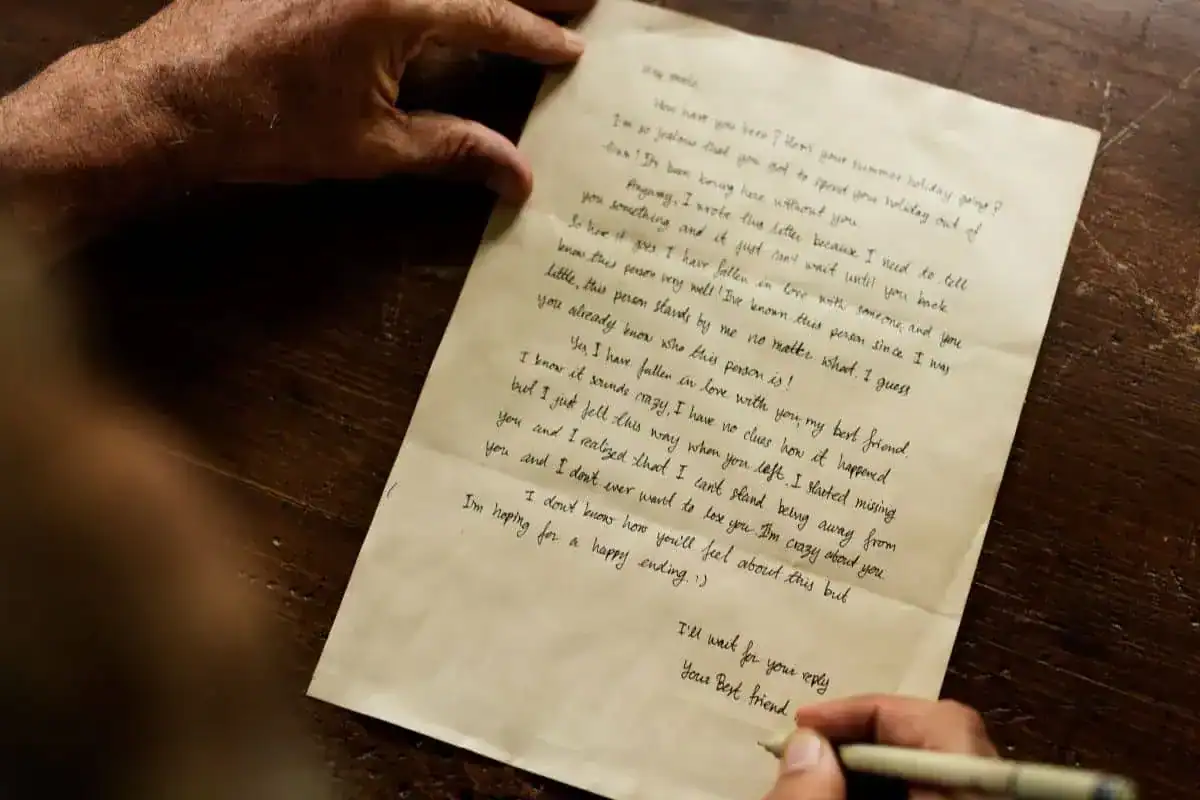 Hey
How have you been? How's your summer holiday going?
I'm so jealous that you got to spend your holiday out of
town! It's been boring here without you.
Anyway, I wrote this letter because I need to tell
you something and it just can't wait until you back.
So here it goes, I have fallen in love with someone, and you
know this person very well! I've known this person since I was
little, this person stands by me no matter what. I guess
you already know who this person is!
Yes, I have fallen in love with you, my best friend.
I know it sounds crazy, I have no clues how it happened
but I just fell this way when you left. I started missing
you and I realized that I can't stand being away from
you and I don't ever want to lose you. I'm crazy about you.
I don't know how you'll feel about this but
I'm hoping for a happy ending. :)
I'll wait for your reply
Your Best friend